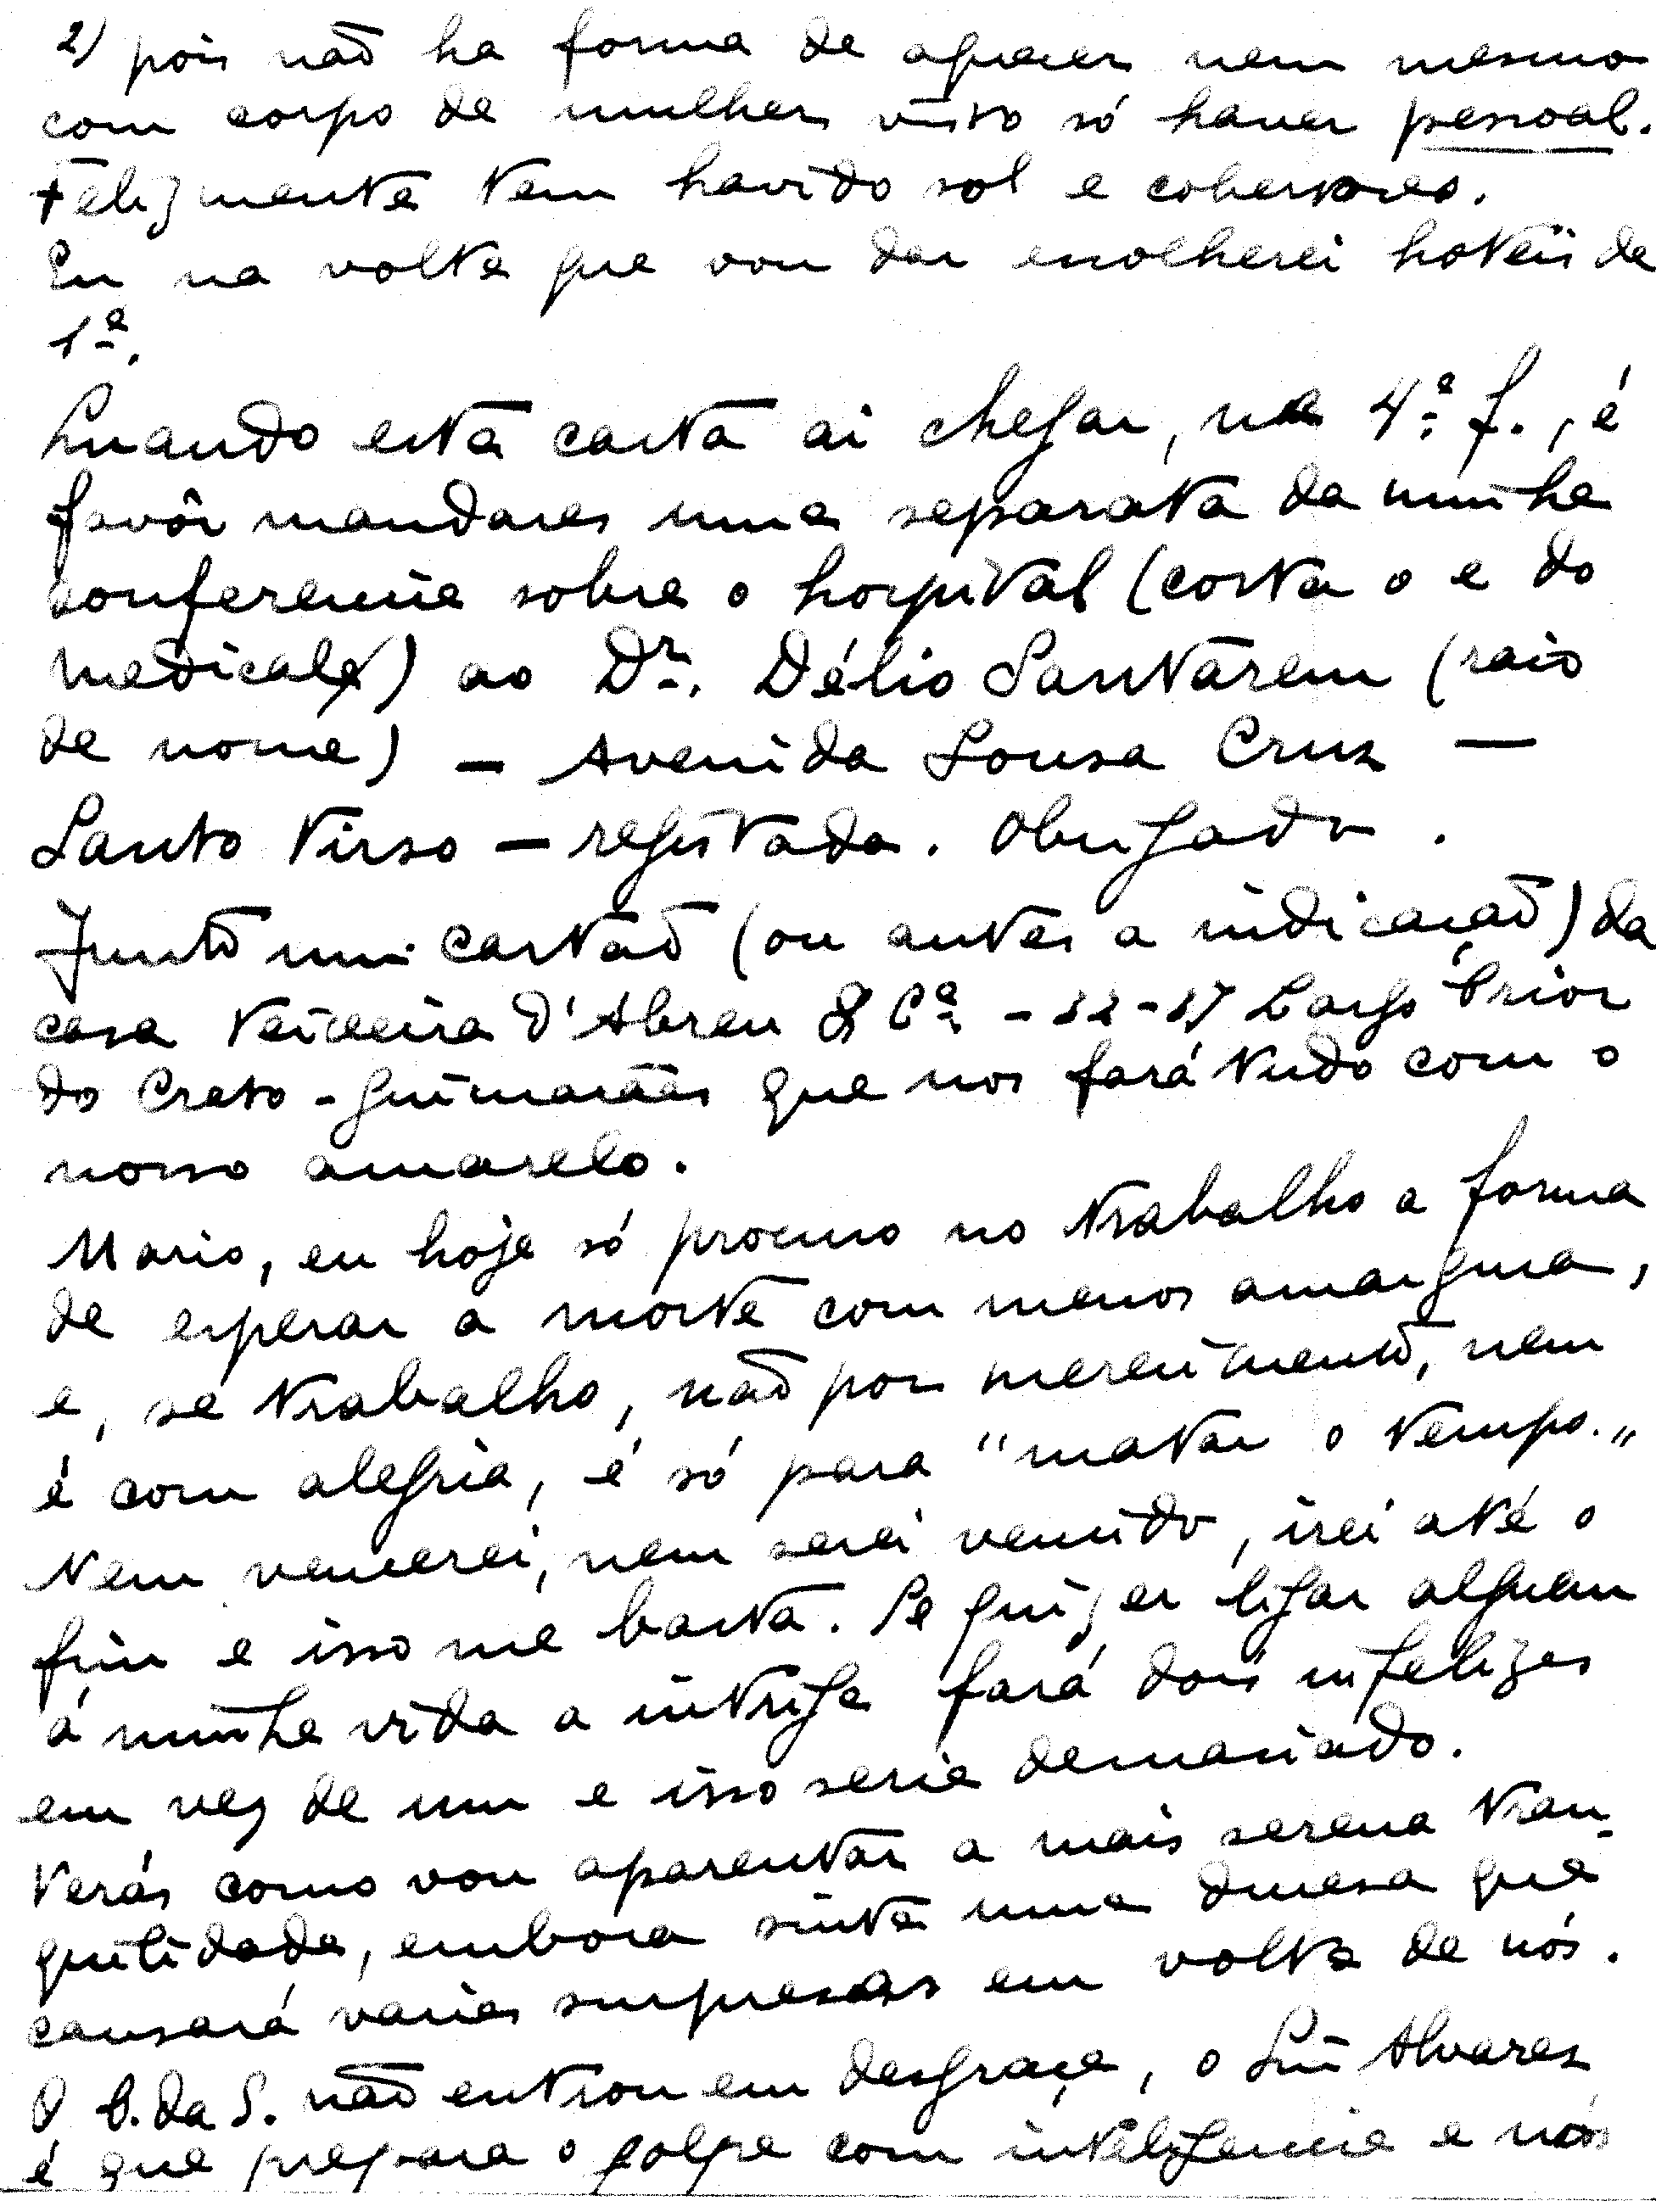 2) pois não ha forma de aquecer nem mesmo
com corpo de mulher visto só haver pessoal.
Felizmente tem havido sol e cobertores.
Eu na volta que vou dar escolherei hoteis de
1ª.
Quando esta carta ai chegar, na 4ª f., é
favôr mandares uma separata da minha
conferencia sobre o hospital (corta o e do
medicale) ao Dr. Délio Santarem (raio
de nome) — Avenida Sousa Cruz —
Santo Tirso — registada. Obrigado.
Junto um cartão (ou antes a indicação) da
casa Teixeira d'Abreu & Cª - 32-37 Largo Prior
do Crato - Guimarães que nos fará tudo com o
nosso amarelo.
Mario, eu hoje só procuro no trabalho a forma
de esperar a morte com menos amargura,
e, se trabalho, não por merecimento, nem
é com alegria, é só para "matar o tempo."
Nem vencerei, nem serei vencido, irei até o
fim e isso me basta. Se quizer ligar alguem
á minha vida a intriga fará dois infelizes
em vez de um e isso seria demasiado.
Verás como vou aparentar a mais serena tran-
quilidade, embora sinta uma dureza que
causará varias surpresas em volta de nós.
O B. da S. não entrou em desgraça, o Luis Alvares
é que prepara o golpe com inteligencia e nós